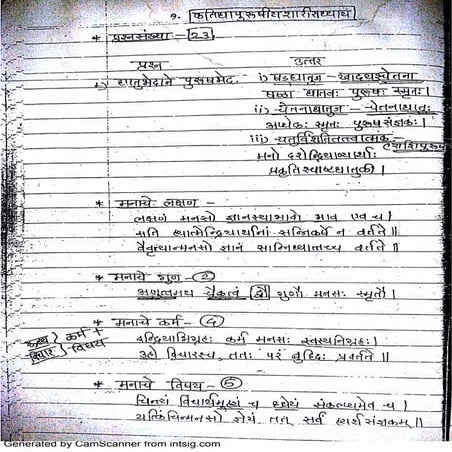 १. कतिधापुरुषीयशारीराध्याय
* प्रश्नसंख्या - 23
प्रश्न उत्तर
i) धातुभेदाने पुरुषभेद. i) षड्धातुज - खादयश्चेतना
षष्ठा धातवः पुरुषः स्मृतः।
ii) चेतनाधातुज - चेतनाधातुः
अप्येकः स्मृतः पुरुषसंज्ञकः।
iii) चतुर्विंशतितत्त्वात्मक - राशिपुरुष
मनो दशेंद्रियाण्यर्थाः
प्रकृतिश्चाष्टधातुकी।
* मनाचे लक्षण -
लक्षणं मनसो ज्ञानस्याभावो भाव एव च।
सति ह्यात्मेन्द्रियार्थानां सन्निकर्षे न वर्तते॥
वैवृत्यान्मनसो ज्ञानं सान्निध्यात्तच्च वर्तते॥
* मनाचे गुण - 2
अणुत्वमथ चैकत्वं द्वौ गुणौ मनसः स्मृतौ।
* मनाचे कर्म - 4
इन्द्रियाभिग्रहः कर्म मनसः स्वस्यनिग्रहः।
उहो विचारश्च, ततः परं बुद्धिः प्रवर्तते॥
ऊह्य कर्म +
विचार विषय
* मनाचे विषय - 5
चिन्त्यं विचार्यमूह्यं च ध्येयं संकल्प्यमेव च।
यत्किंचिन्मनसो ज्ञेयं तत् सर्वं ह्यर्थसंज्ञकम्॥
Generated by CamScanner from intsig.com